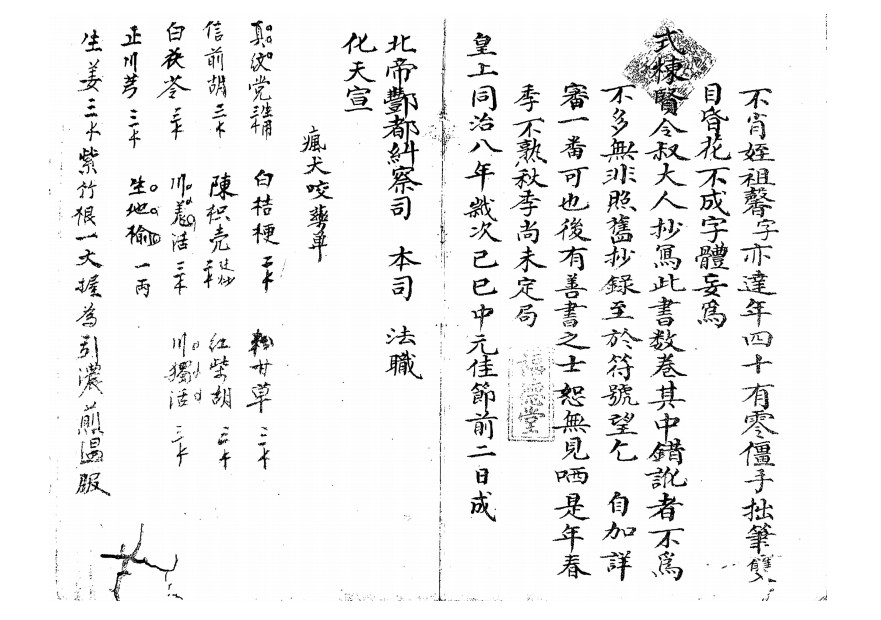 不肖姪祖馨字亦達年四十有零僵手拙筆雙
目昏花不成字體妄爲
式棟賢令叔大人抄寫此書数卷其中錯訛者不爲
不多無非照舊抄錄至於符號望乞 自加詳
審一番可也後有善書之士恕無見哂是年春
季不熟秋季尚未定局
德堂
皇上同治八年歲次己巳中元佳節前二日成
北帝酆都糾察司 本司 法職
化天宣
瘋犬咬藥單
真紋党 三钱 白桔梗 二钱 甘草 二钱
信前胡 三钱 陳枳壳 二钱 红柴胡 二钱
白茯苓 三钱 川羗活 三钱 川獨活 三钱
正川芎 三钱 生地榆 一両
生姜三钱紫竹根一大握為引濃煎温服